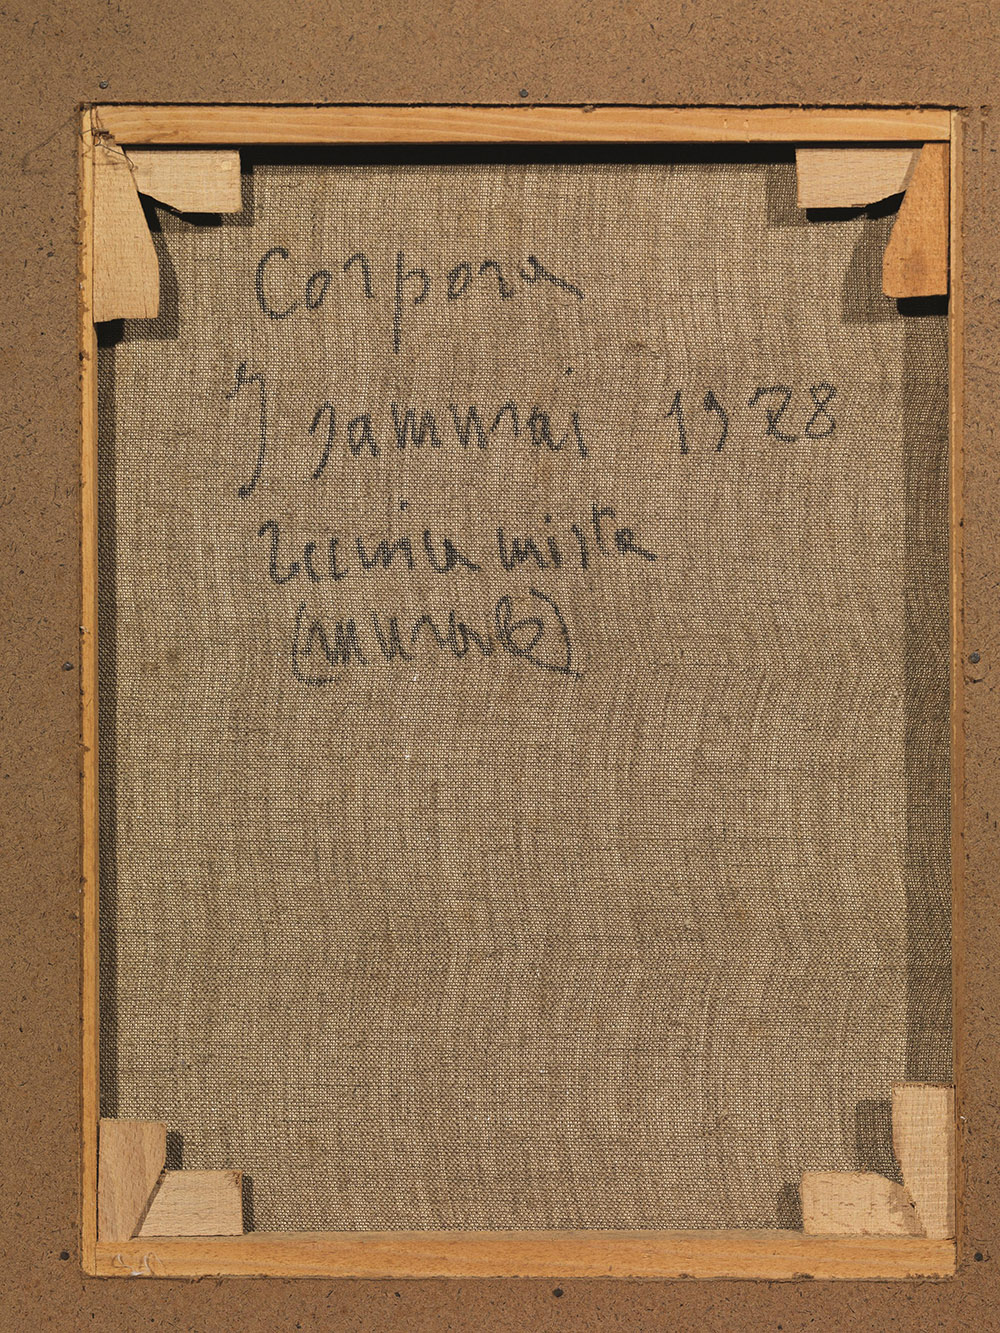 Corpora
I samurai 1928
tecnica mista
(murale)